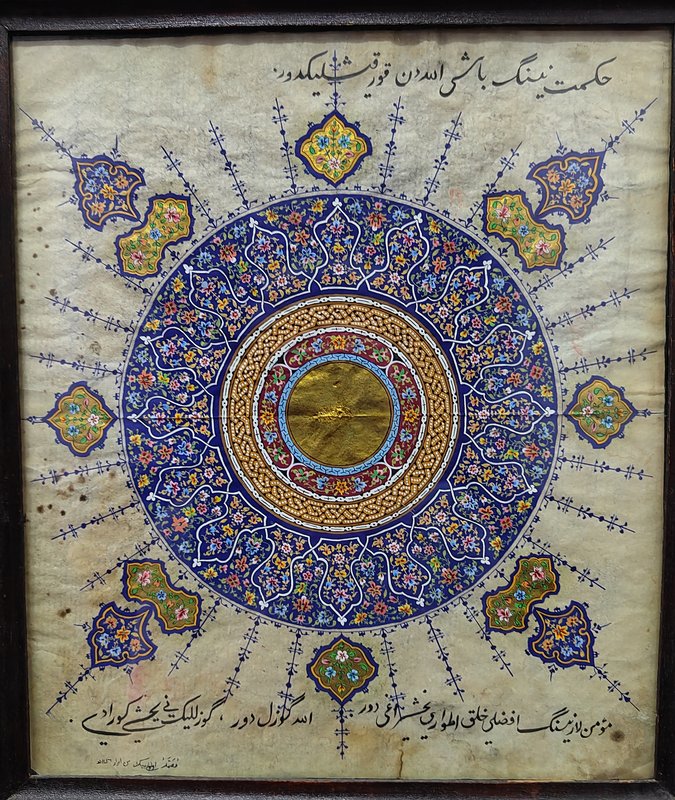 حکمت نینگ باشی الله دن قورقیشلیکدور.
مؤمن لارنینگ افضلی خلق اطواری یخشیراغی دور
الله گوزل دور، گوزللیک نی یخشی کورادی.